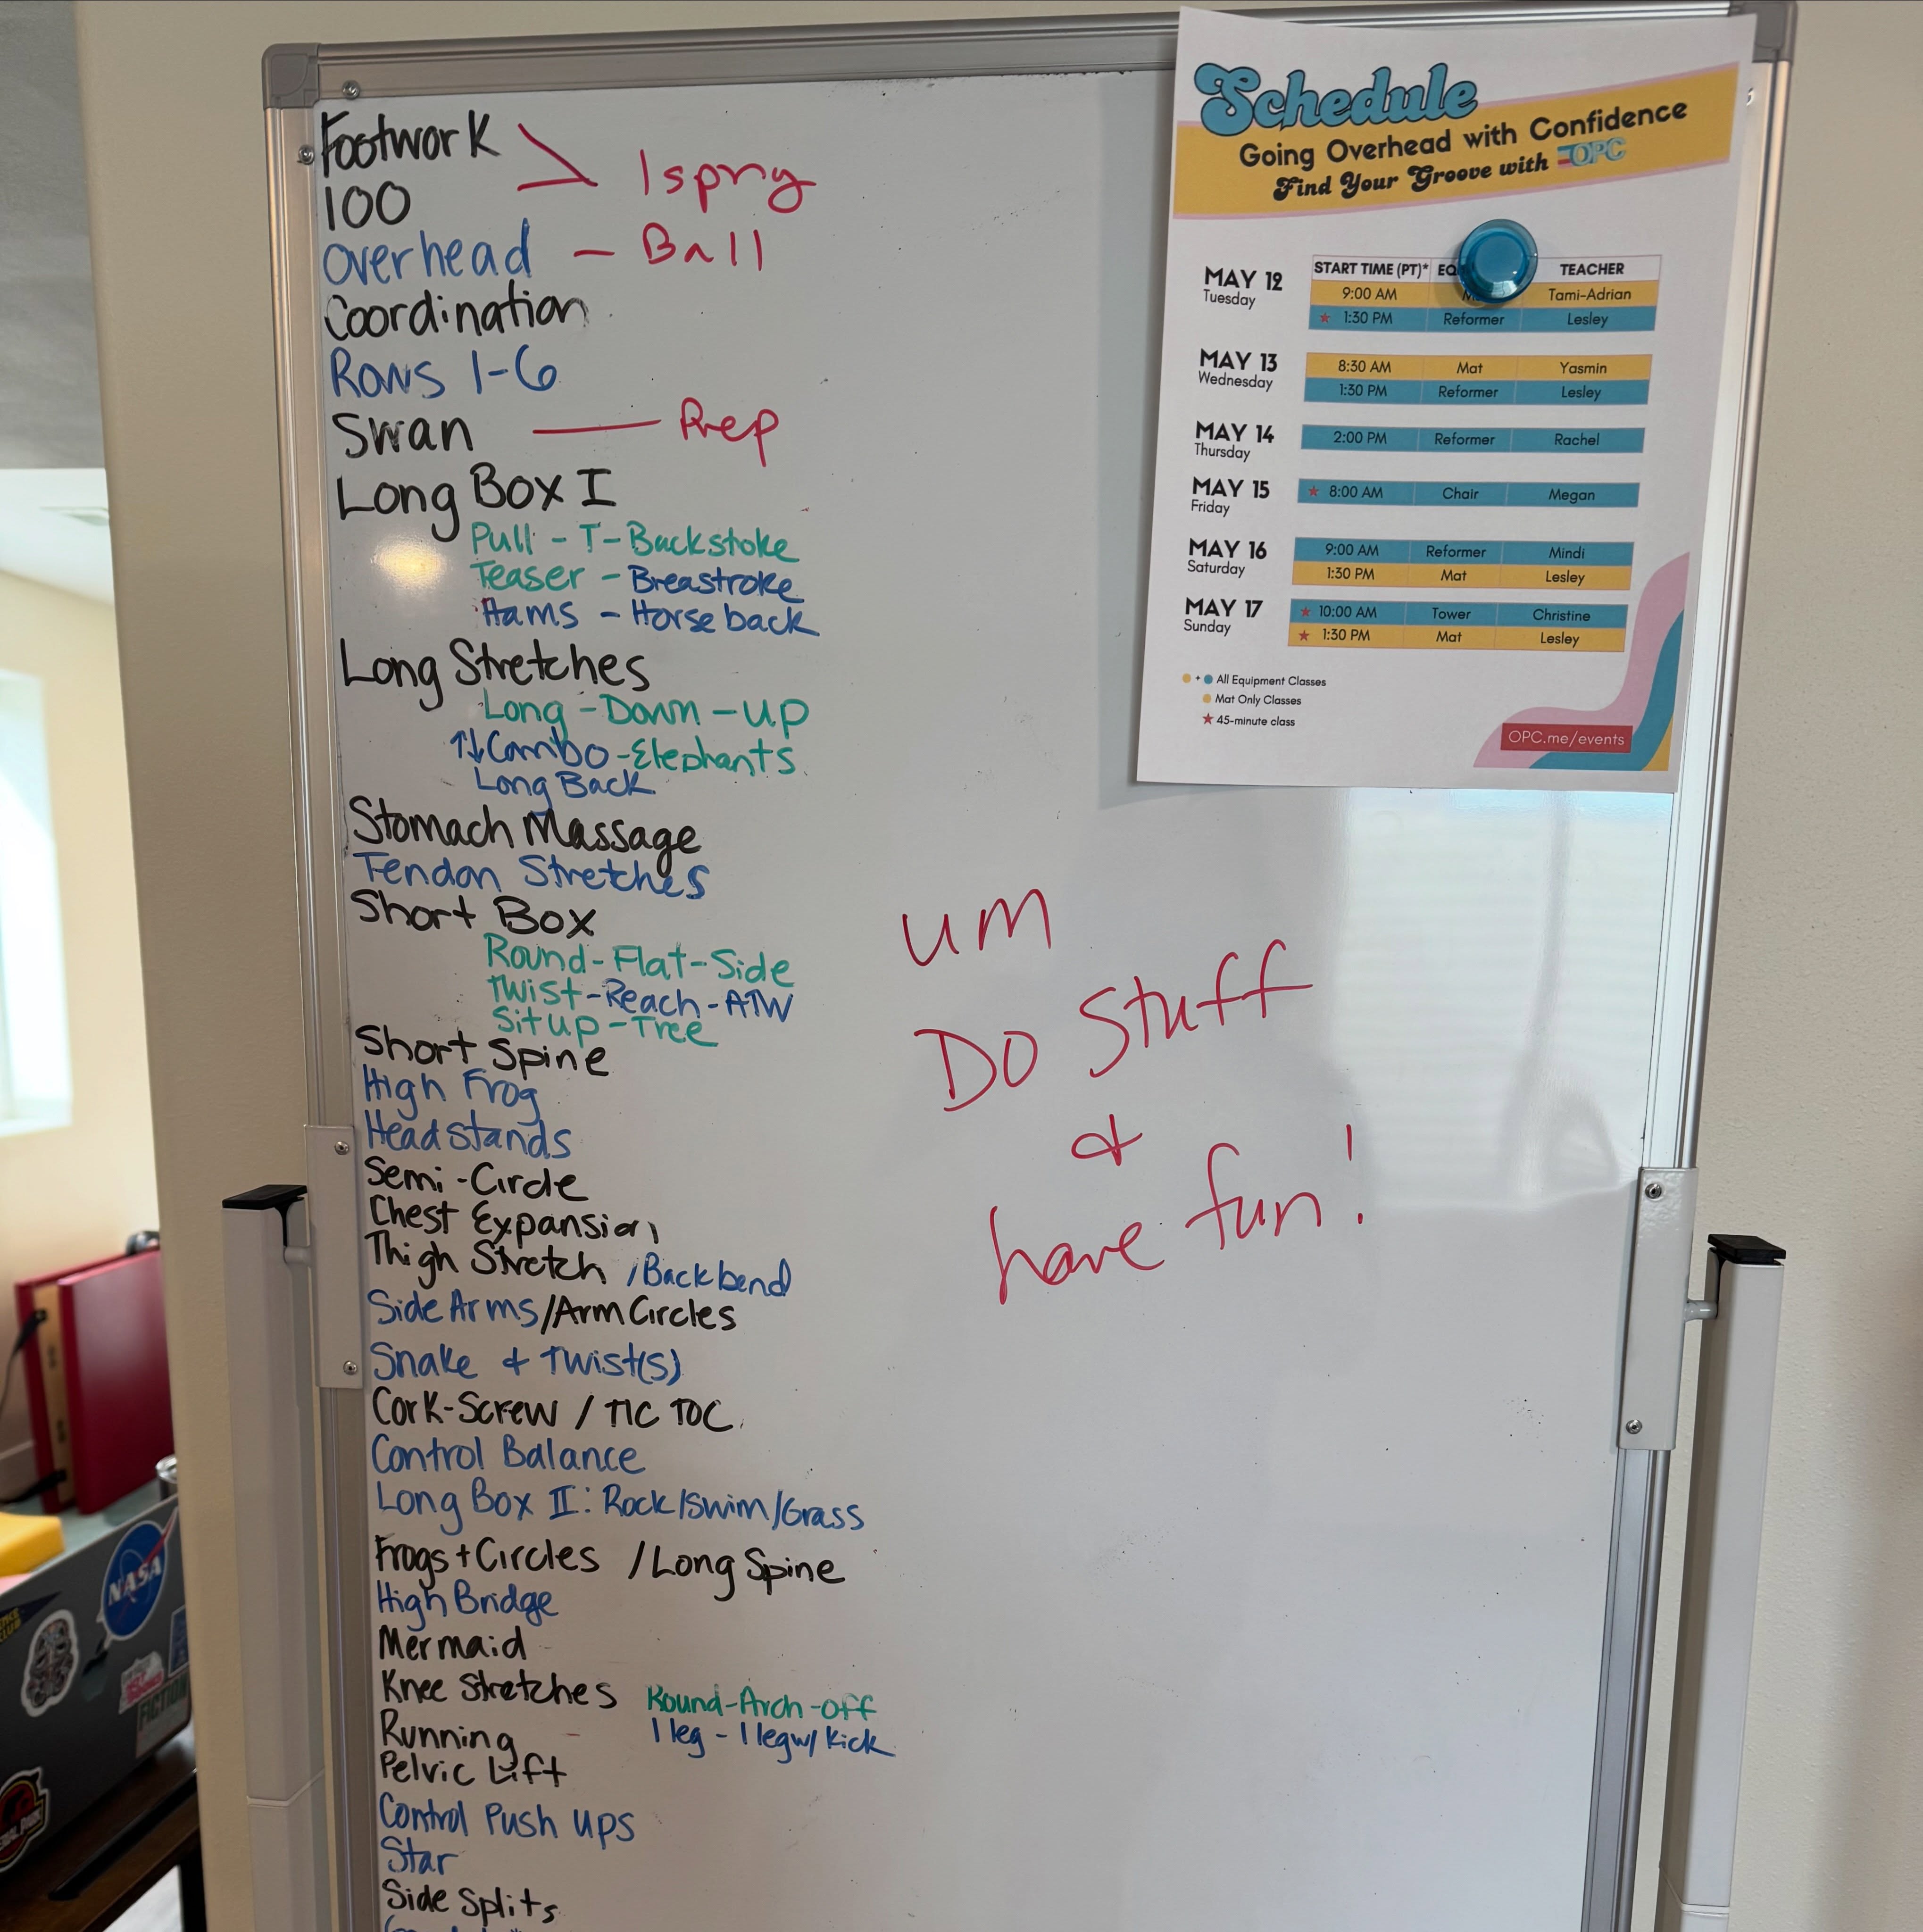 Footwork
100
> 1 sprng
Overhead - Ball
Coordination
Rows 1-6
Swan — Prep
Long Box I
Pull - T - Backstoke
Teaser - Breastroke
Hams - Horseback
Long Stretches
Long - Down - up
↑↓ Combo - Elephants
Long Back
Stomach Massage
Tendon Stretches
Short Box
Round - Flat - Side
Twist - Reach - ATW
Situp - Tree
Short Spine
High Frog
Headstands
Semi-Circle
Chest Expansion
Thigh Stretch / Backbend
Side Arms / Arm Circles
Snake & Twist(s)
Cork-Screw / TIC TOC
Control Balance
Long Box II: Rock/Swim/Grass
Frogs + Circles / Long Spine
High Bridge
Mermaid
Knee Stretches Round - Arch - off
Running 1 leg - 1 leg w/ kick
Pelvic Lift
Control Push ups
Star
Side Splits
um
Do Stuff
&
have fun!
Schedule
Going Overhead with Confidence
Find Your Groove with OPC
START TIME (PT)* TEACHER
MAY 12
Tuesday
9:00 AM Tami-Adrian
★ 1:30 PM Reformer Lesley
MAY 13
Wednesday
8:30 AM Mat Yasmin
1:30 PM Reformer Lesley
MAY 14
Thursday
2:00 PM Reformer Rachel
MAY 15
Friday
★ 8:00 AM Chair Megan
MAY 16
Saturday
9:00 AM Reformer Mindi
1:30 PM Mat Lesley
MAY 17
Sunday
★ 10:00 AM Tower Christine
★ 1:30 PM Mat Lesley
+ All Equipment Classes
Mat Only Classes
★ 45-minute class
OPC.me/events
NASA
FICTION